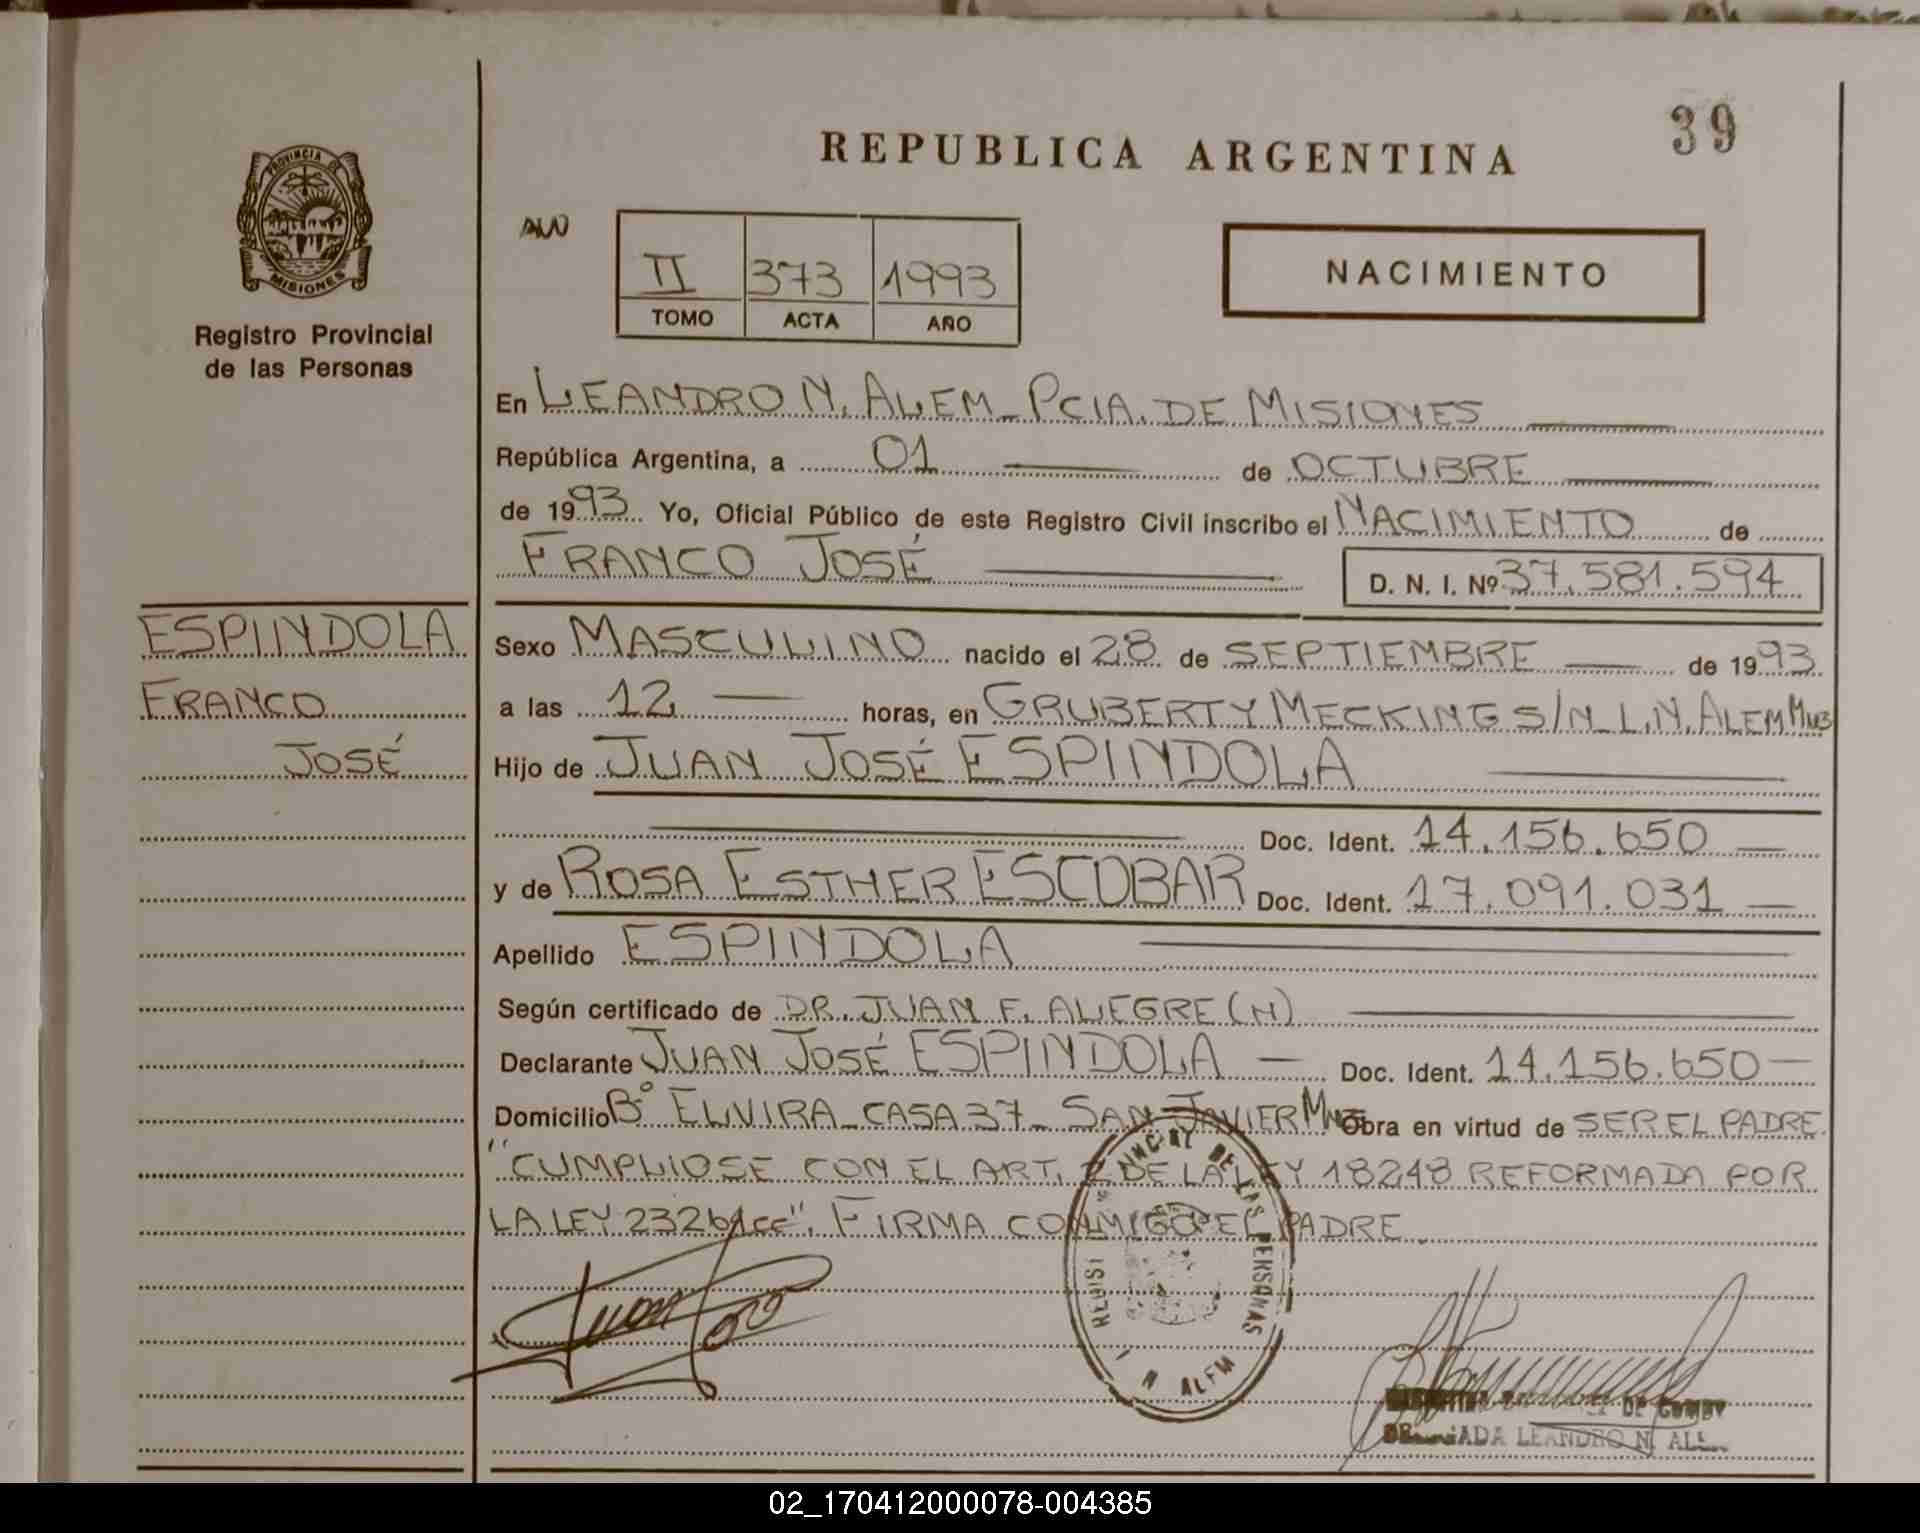 39
REPUBLICA ARGENTINA
PROVINCIA DE
MISIONES
Registro Provincial
de las Personas
II 373 1993
TOMO ACTA AÑO
NACIMIENTO
En LEANDRO N. ALEM_PCIA. DE MISIONES
República Argentina, a 01 de OCTUBRE
de 1993 Yo, Oficial Público de este Registro Civil inscribo el NACIMIENTO de
FRANCO JOSÉ D. N. I. Nº 37.581.594
ESPINDOLA
FRANCO
JOSÉ
Sexo MASCULINO nacido el 28 de SEPTIEMBRE de 1993
a las 12 horas, en GRUBERT Y MECKING S/N_L.N. ALEM Mnes
Hijo de JUAN JOSÉ ESPINDOLA
Doc. Ident. 14.156.650
y de ROSA ESTHER ESCOBAR Doc. Ident. 17.091.031
Apellido ESPINDOLA
Según certificado de DR. JUAN F. ALEGRE (H)
Declarante JUAN JOSÉ ESPINDOLA Doc. Ident. 14.156.650
Domicilio Bº ELVIRA_CASA 37_SAN JAVIER Mnes Obra en virtud de SER EL PADRE.
"CUMPLIOSE CON EL ART. 2 DE LA LEY 18248 REFORMADA POR
LA LEY 23264". FIRMA CONMIGO EL PADRE.
DE LAS PERSONAS
N ALEM
LEANDRO N. AL
02_170412000078-004385